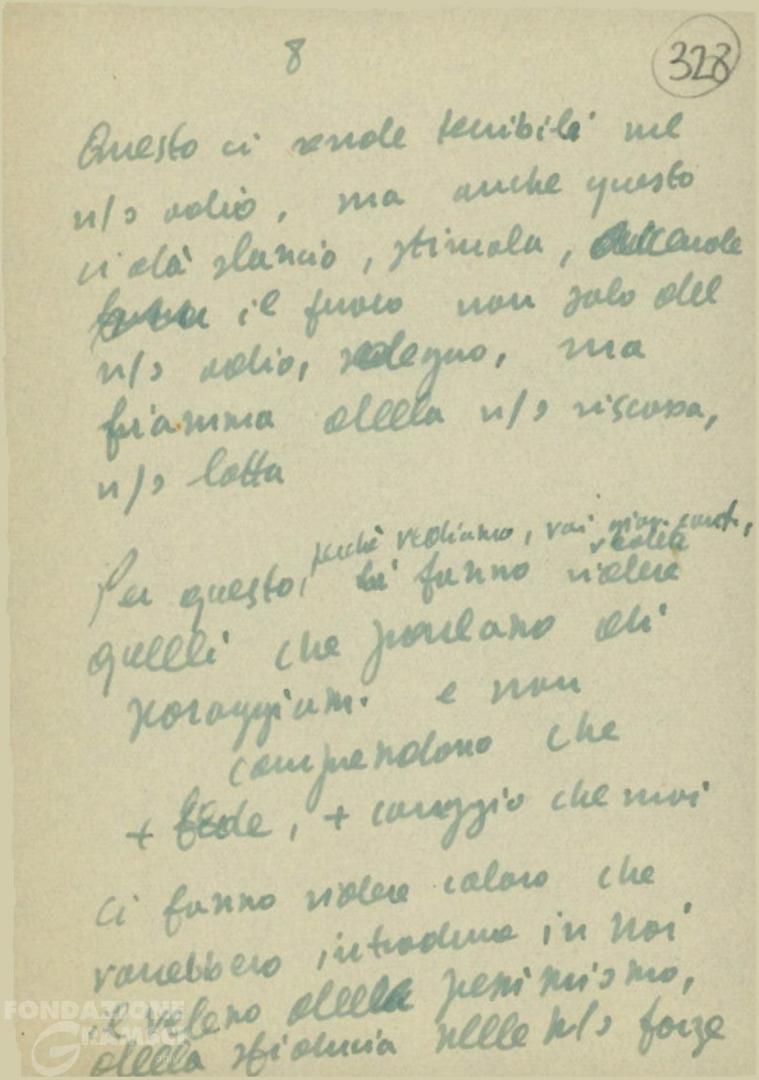 8
328
Questo ci rende terribili nel
n/s odio, ma anche questo
ci dà slancio, stimola, accende
il fuoco non solo del
n/s odio, sdegno, ma
fiamma della n/s riscossa,
n/s lotta
perché vediamo, voi giov.
Per questo, ci fanno ridere
quelli che parlano di
scoraggiam. e non
comprendono che
+ fede, + coraggio che mai
Ci fanno ridere coloro che
vorrebbero introdurre in noi
il veleno della pessimismo,
della sfiducia nelle n/s forze
FONDAZIONE
GRAMSCI
onlus